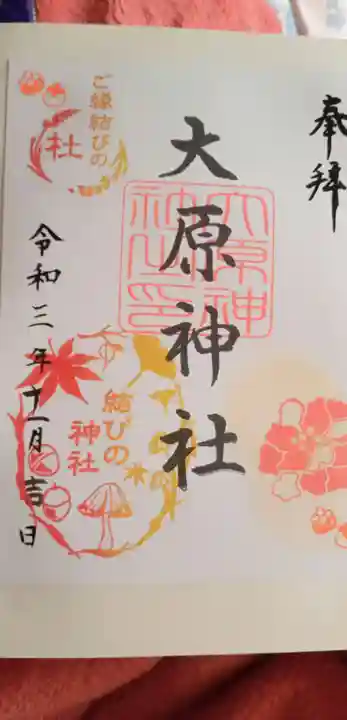 奉拝
大原神社
大原神
社之印
ご縁結びの
社
結びの
神社
令和三年十一月吉日